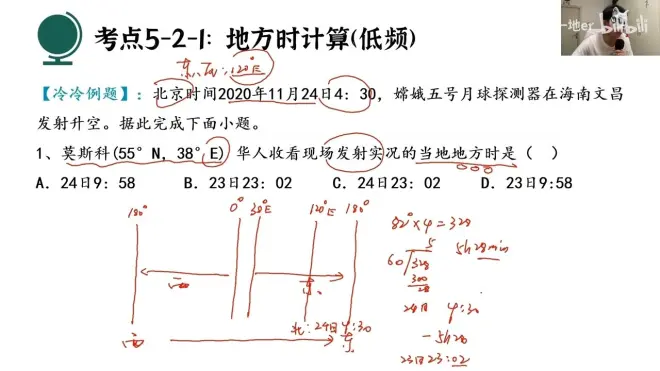 考点5-2-1: 地方时计算(低频)
一地er bilibili
东八区:120°E
【冷冷例题】: 北京时间2020年11月24日4: 30, 嫦娥五号月球探测器在海南文昌
发射升空。据此完成下面小题。
1、莫斯科(55°N, 38°E) 华人收看现场发射实况的当地地方时是 ( )
A. 24日9: 58 B. 23日23: 02 C. 24日23: 02 D. 23日9:58
180° 0° 38°E 120°E 180°
82°×4=328
5
60 328
300
28
5h28min
西 东
24日 4:30
北:24日4:30
-5h28
西 东
23日23:02